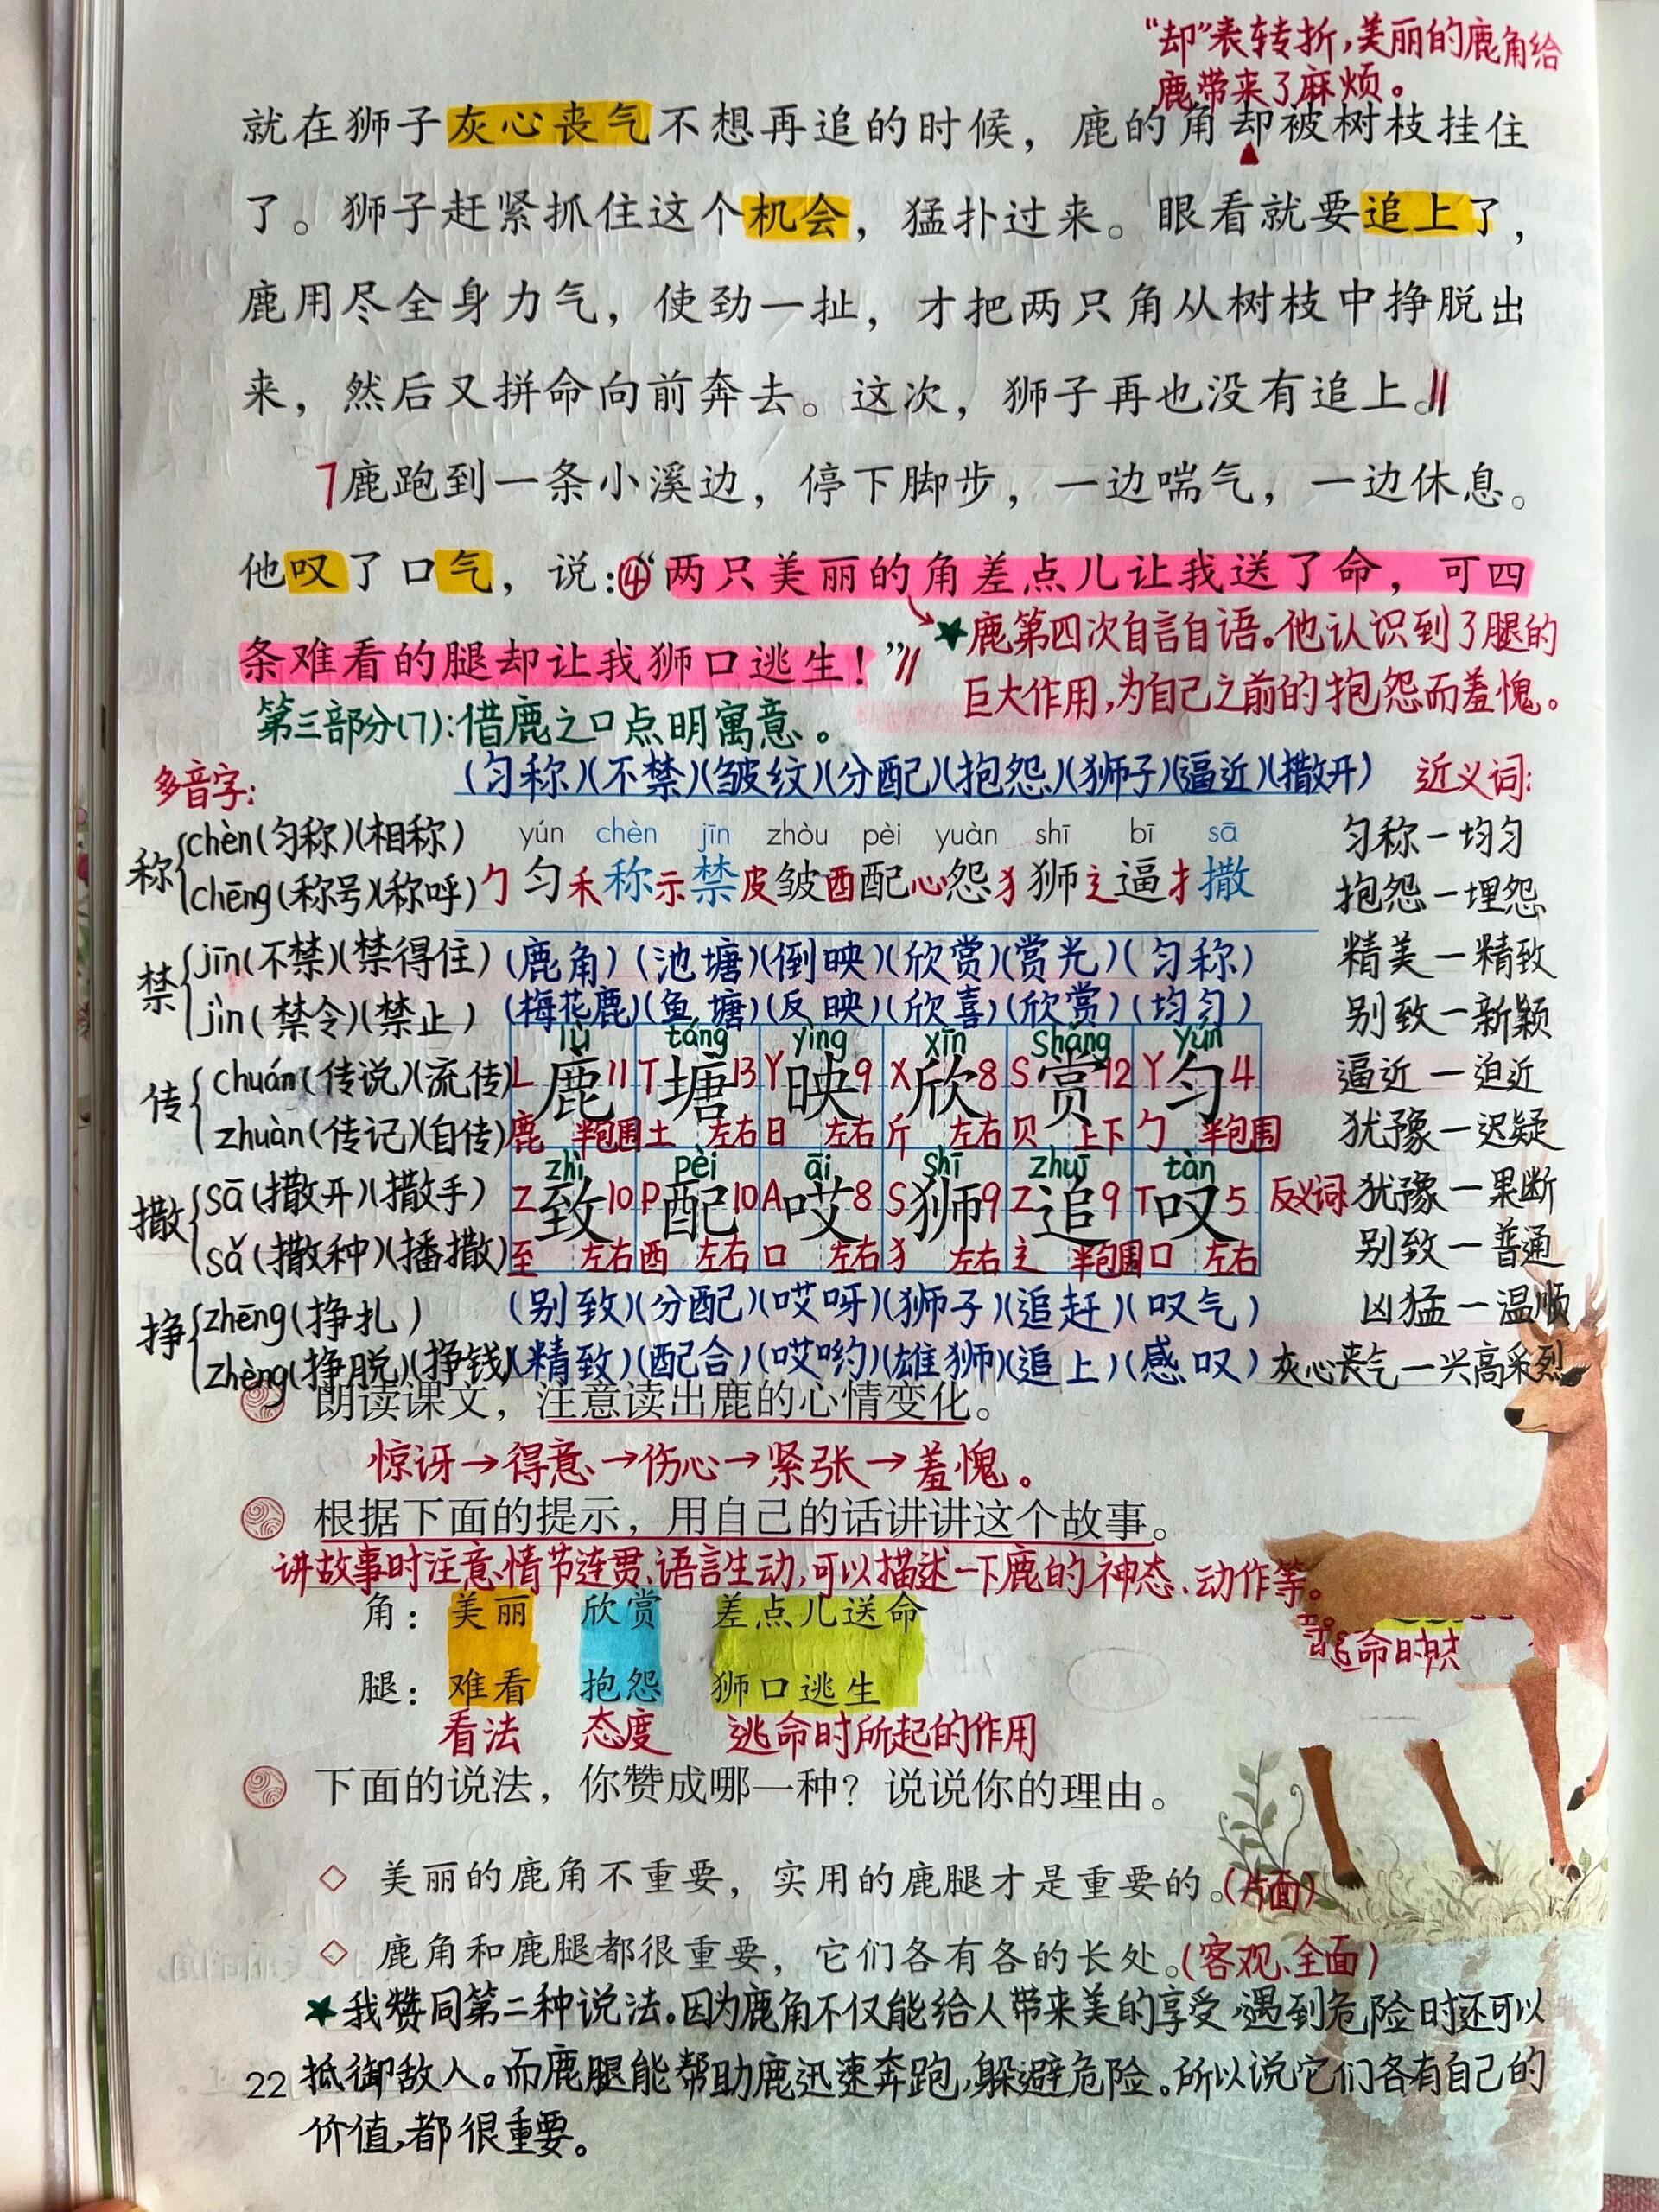 “却”表转折,美丽的鹿角给
鹿带来了麻烦。
就在狮子灰心丧气不想再追的时候，鹿的角却被树枝挂住
了。狮子赶紧抓住这个机会，猛扑过来。眼看就要追上了，
鹿用尽全身力气，使劲一扯，才把两只角从树枝中挣脱出
来，然后又拼命向前奔去。这次，狮子再也没有追上。//
7鹿跑到一条小溪边，停下脚步，一边喘气，一边休息。
他叹了口气，说：④“两只美丽的角差点儿让我送了命，可四
条难看的腿却让我狮口逃生！”//
★鹿第四次自言自语。他认识到了腿的
巨大作用,为自己之前的抱怨而羞愧。
第三部分(7):借鹿之口点明寓意。
(匀称)(不禁)(皱纹)(分配)(抱怨)(狮子)(逼近)(撒开)
yún chèn jīn zhòu pèi yuàn shī bī sā
勹匀禾称示禁皮皱酉配心怨犭狮辶逼扌撒
多音字:
称 chèn(匀称)(相称)
chēng(称号)(称呼)
禁 jīn(不禁)(禁得住)
jìn(禁令)(禁止)
传 chuán(传说)(流传)
zhuàn(传记)(自传)
撒 sā(撒开)(撒手)
sǎ(撒种)(播撒)
挣 zhēng(挣扎)
zhèng(挣脱)(挣钱)
(鹿角)(池塘)(倒映)(欣赏)(赏光)(匀称)
(梅花鹿)(鱼塘)(反映)(欣喜)(欣赏)(均匀)
lù táng yìng xīn shǎng yún
L鹿11 T塘13 Y映9 X欣8 S赏12 Y匀4
鹿 半包围 土 左右 日 左右 斤 左右 贝 上下 勹 半包围
zhì pèi āi shī zhuī tàn
Z致10 P配10 A哎8 S狮9 Z追9 T叹5
至 左右 酉 左右 口 左右 犭 左右 辶 半包围 口 左右
(别致)(分配)(哎呀)(狮子)(追赶)(叹气)
(精致)(配合)(哎哟)(雄狮)(追上)(感叹)
近义词:
匀称—均匀
抱怨—埋怨
精美—精致
别致—新颖
逼近—迫近
犹豫—迟疑
反义词 犹豫—果断
别致—普通
凶猛—温顺
灰心丧气—兴高采烈
朗读课文，注意读出鹿的心情变化。
惊讶→得意→伤心→紧张→羞愧。
根据下面的提示，用自己的话讲讲这个故事。
讲故事时注意情节连贯、语言生动,可以描述一下鹿的神态、动作等。
角：美丽 欣赏 差点儿送命
腿：难看 抱怨 狮口逃生
看法 态度 逃命时所起的作用
下面的说法，你赞成哪一种？说说你的理由。
◇ 美丽的鹿角不重要，实用的鹿腿才是重要的。(片面)
◇ 鹿角和鹿腿都很重要，它们各有各的长处。(客观、全面)
★我赞同第二种说法。因为鹿角不仅能给人带来美的享受,遇到危险时还可以
抵御敌人。而鹿腿能帮助鹿迅速奔跑,躲避危险。所以说它们各有自己的
价值,都很重要。
22